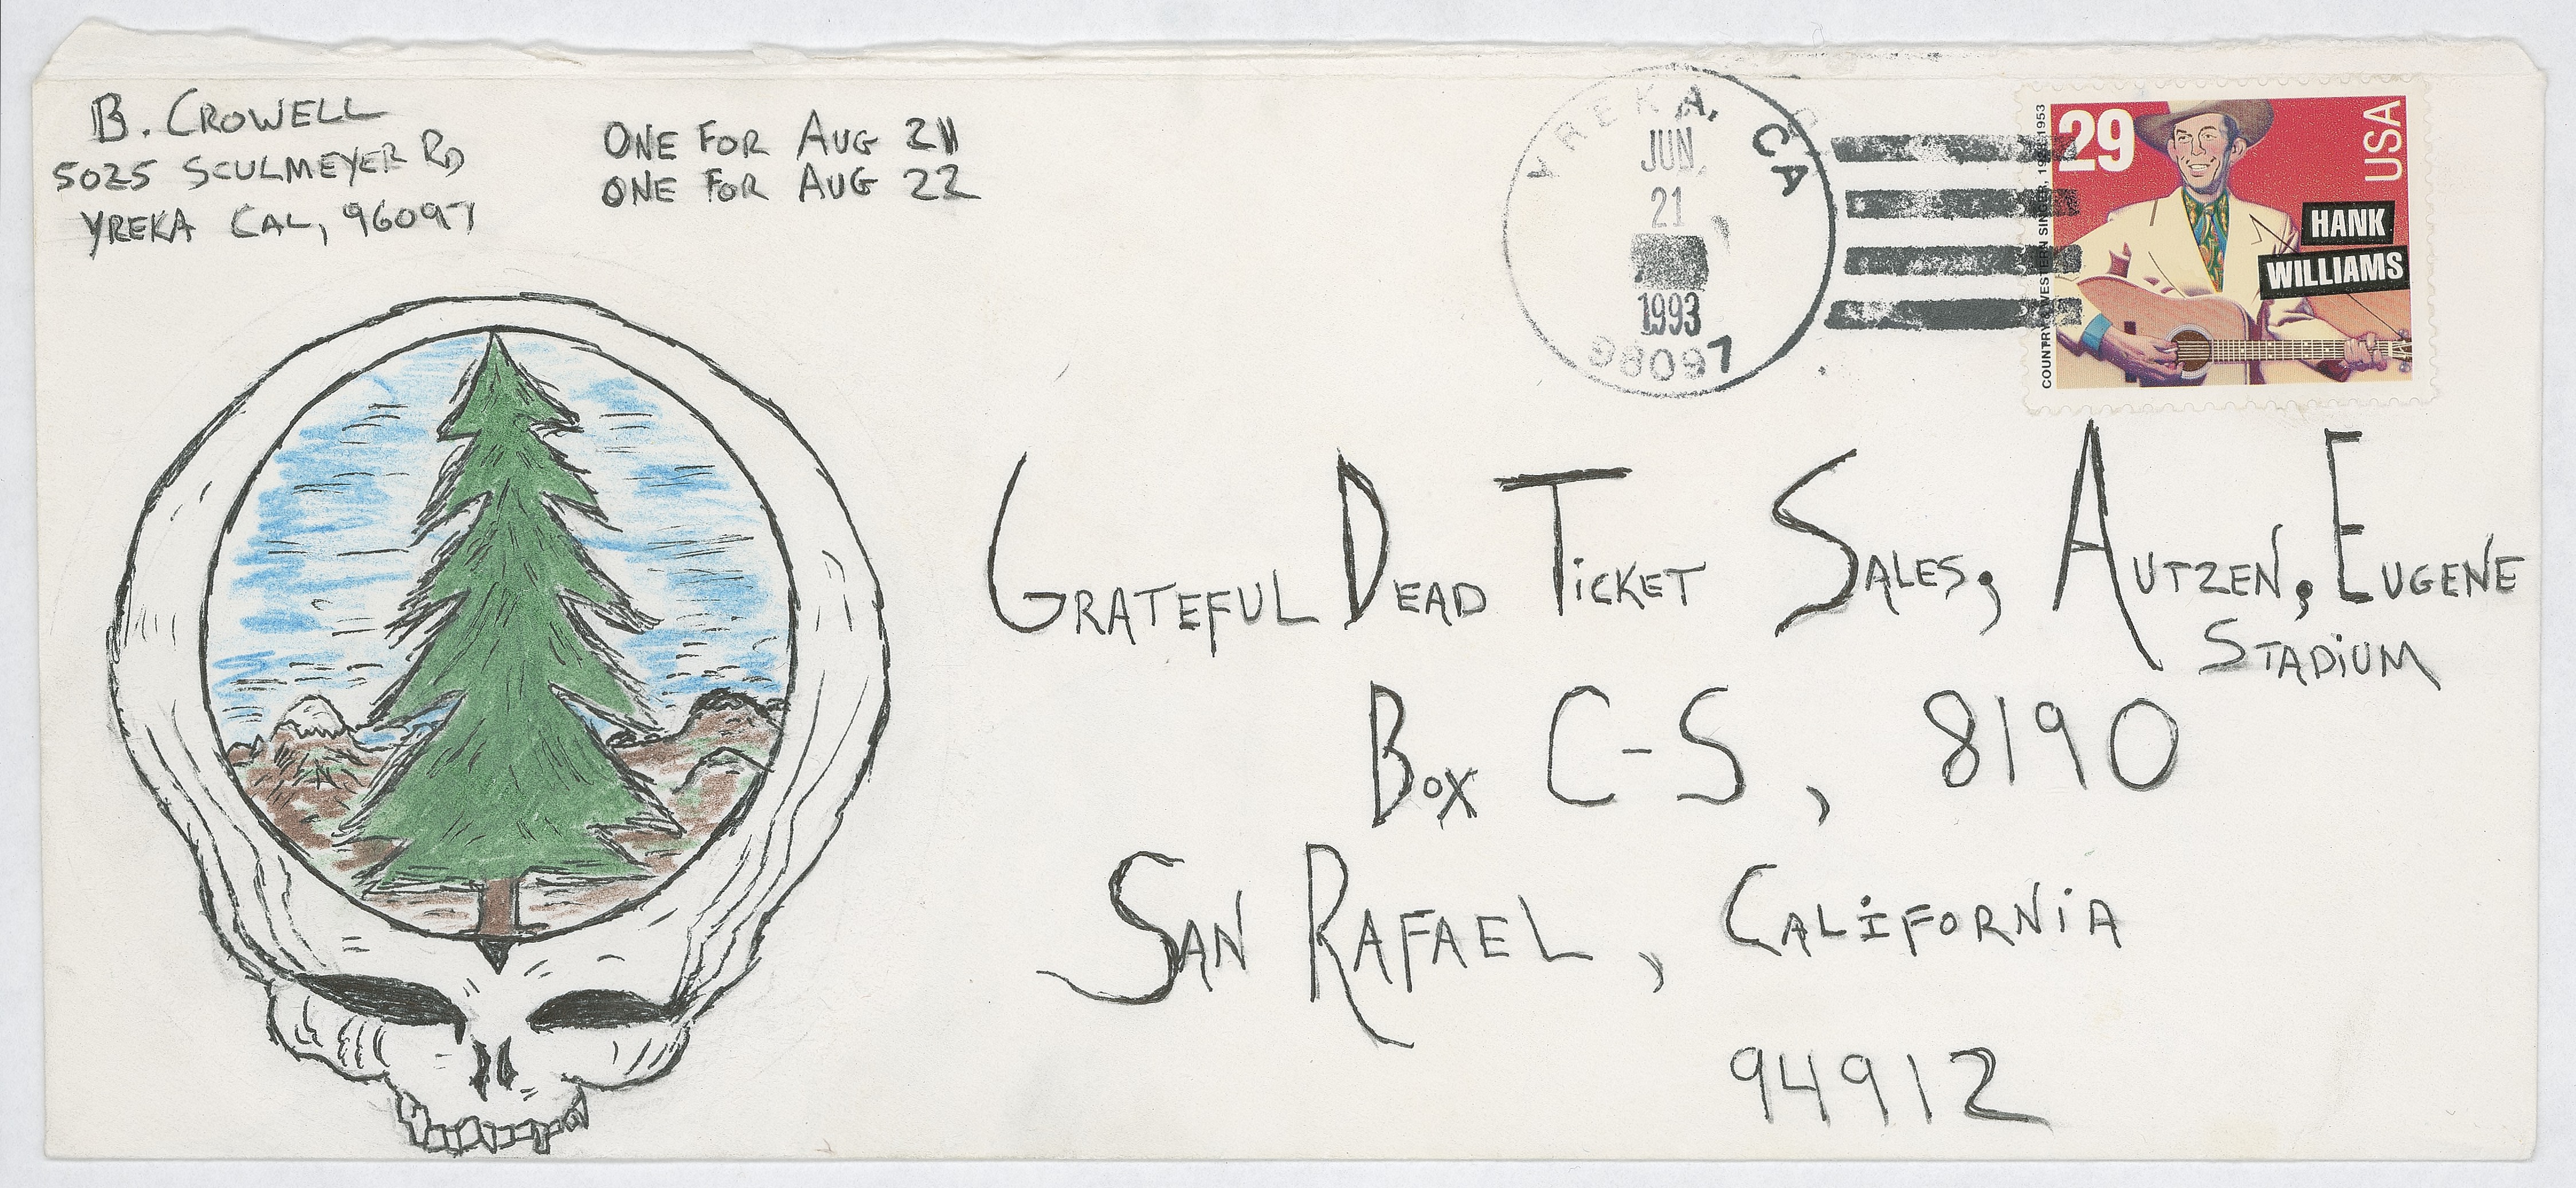 B. CROWELL
5025 SCULMEYER RD
YREKA CAL, 96097
ONE FOR AUG 21
ONE FOR AUG 22
YREKA, CA
JUN.
21
1993
96097
29
USA
HANK
WILLIAMS
COUNTRY & WESTERN SINGER, 1923-1953
GRATEFUL DEAD TiCKET SALES, AUTZEN, EUGENE
STADiUM
BOX C-S, 8190
SAN RAFAEL, CALIFORNiA
94912